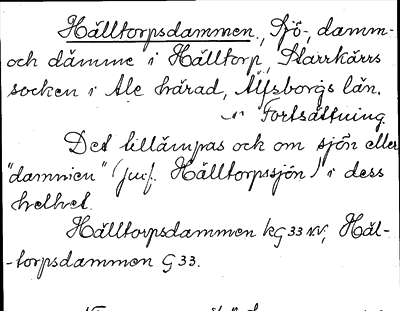 Hälltorpsdammen, Sjö-, damm-
och dämme i Hälltorp, Starrkärrs
socken i Ale härad, Älfsborgs län.
Fortsättning
Det tillämpas och om sjön eller
"dammen" (jmf. Hälltorpssjön) i dess
helhet.
Hälltorpsdammen kG 33 NV, Häl-
-torpsdammen G 33.